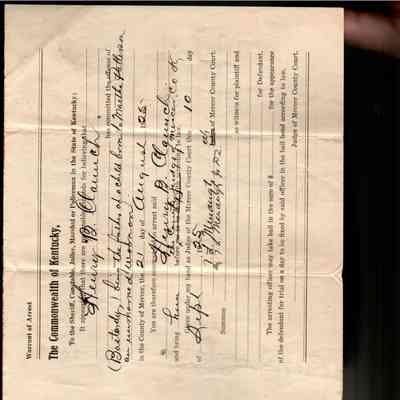 Warrant of Arrest
The Commonwealth of Kentucky,
To the Sheriff, Constable, Jailer, Marshal or Policeman in the State of Kentucky:
It appearing that there are reasonable grounds for believing that
Henry B. Claunch
has committed the offense of
(Bastardy) being the father of a child born to Martha Patterson
an unmarried woman
in the County of Mercer, the 21 day of August 1925
You are therefore commanded to arrest said Henry B Claunch
and bring him before
to be dealt with according to law.
Given under my hand as Judge of the Mercer County Court this 10 day
of Sept 1925
Judge of Mercer County Court.
Summons
as witness for plaintiff and
for Defendant,
The arresting officer may take bail in the sum of $ for the appearance
of the defendant for trial on a day to be fixed by said officer in the bail bond according to law.
Judge of Mercer County Court.